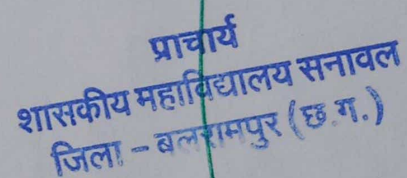 प्राचार्य
शासकीय महाविद्यालय सनावल
जिला - बलरामपुर (छ.ग.)